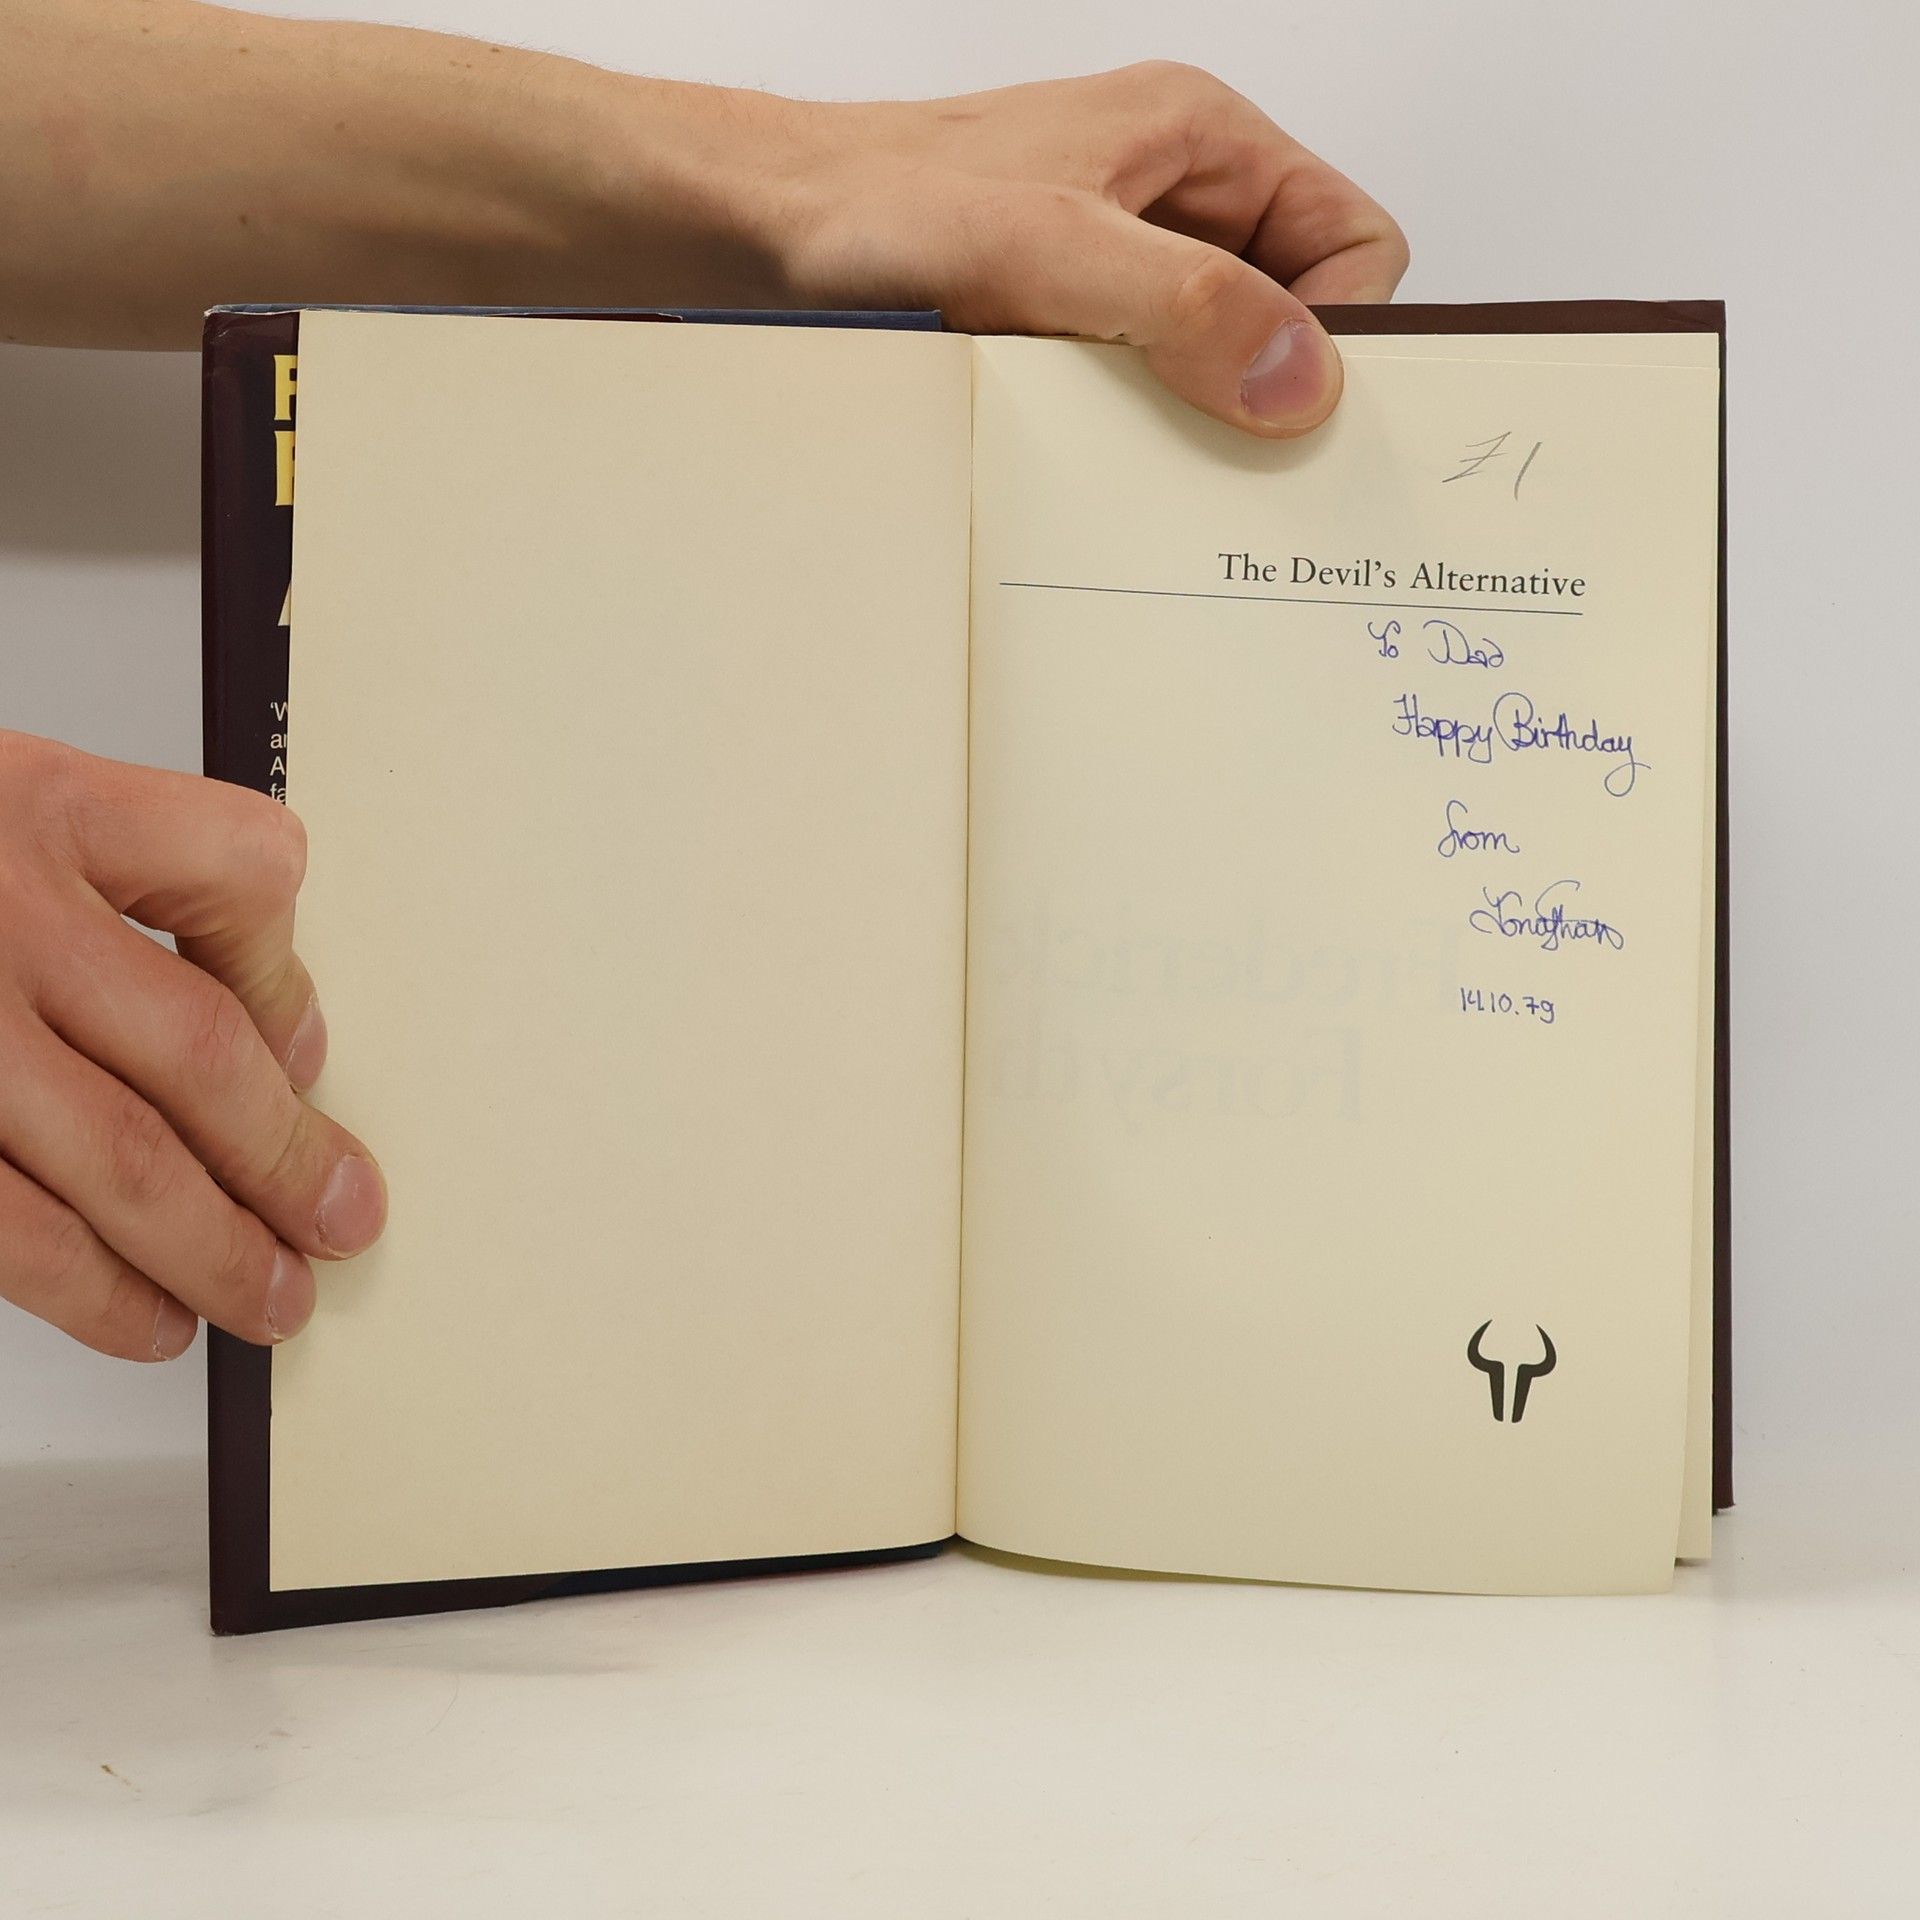 £1
The Devil's Alternative
To Dad
Happy Birthday
from
Jonathan
14.10.79
'W
A
fa